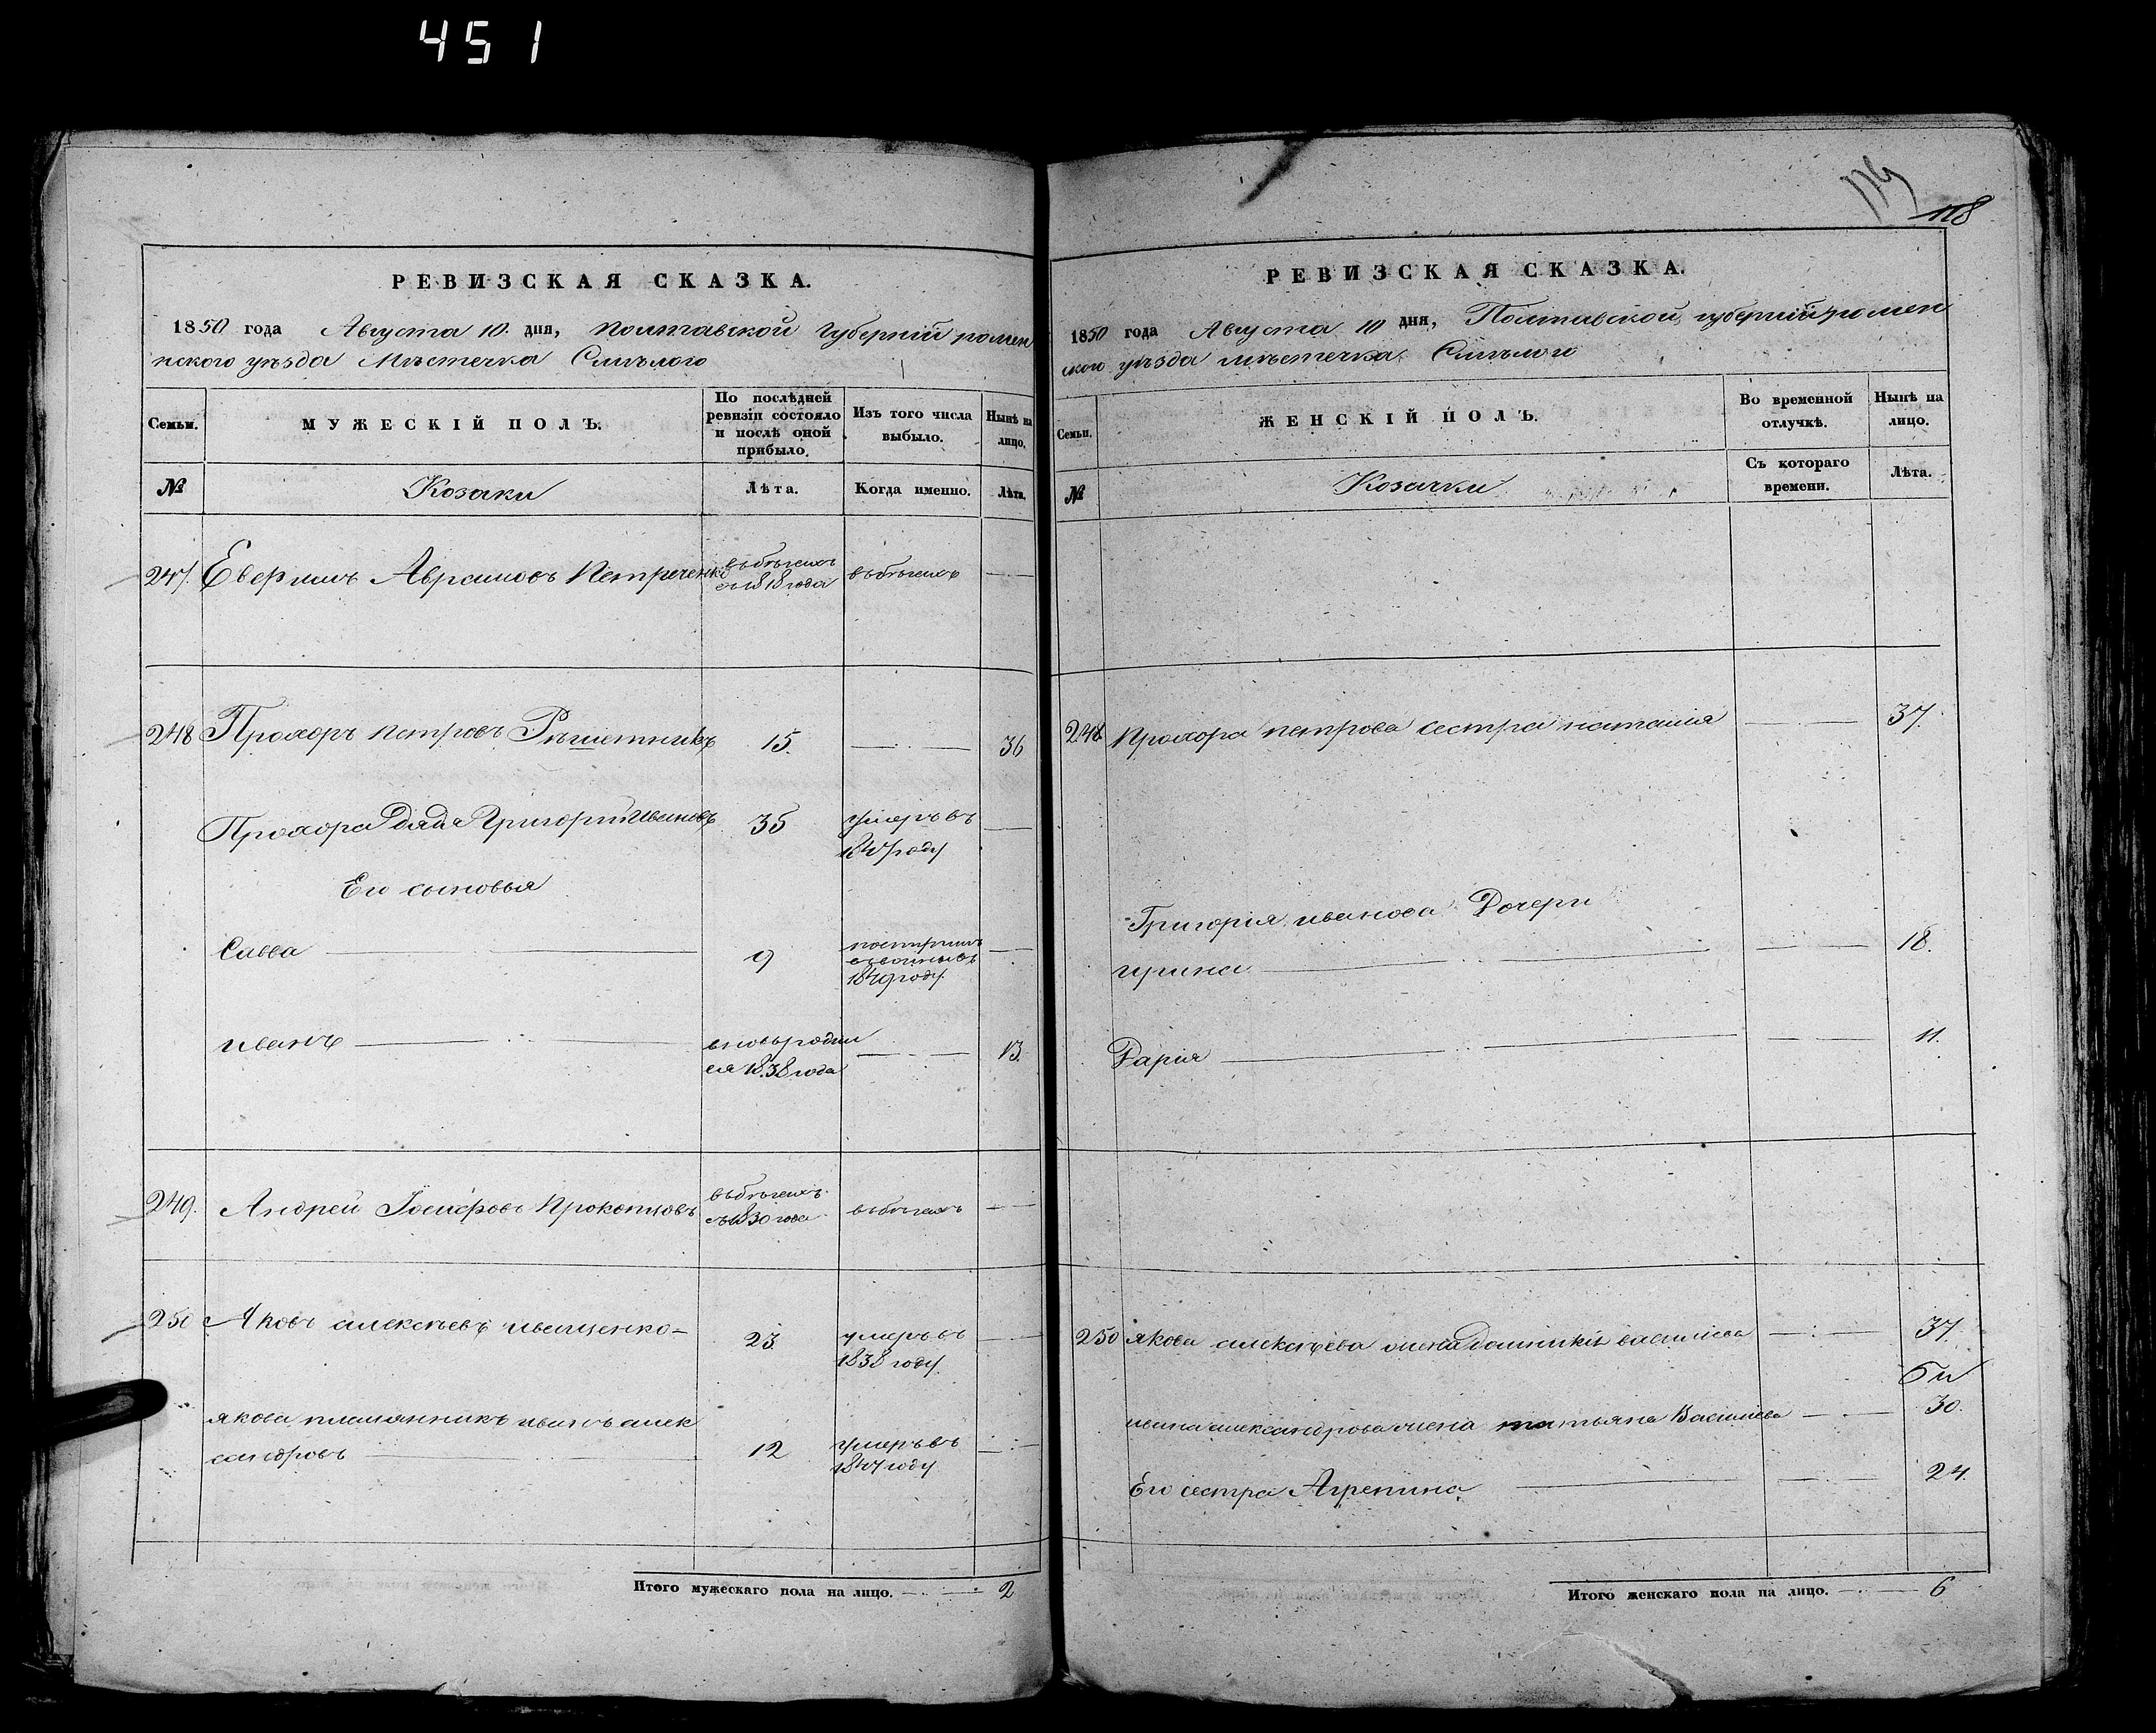 451
118
РЕВИЗСКАЯ СКАЗКА.
1850 года Августа 10 дня, Полтавской Губерніи ромен
нского уѣзда Мѣстечка Смѣлого
Семьи.
МУЖЕСКІЙ ПОЛЪ.
По послѣдней ревизіи состояло и послѣ оной прибыло.
Изъ того числа выбыло.
Ныне на лицо.
№
Козаки
Лѣта.
Когда именно.
Лѣта.
247. Аврамовъ Петреченко въ бѣгахъ съ 1818 года въ бѣгахъ —
248 Прохоръ петровъ Рѣшетникъ 15. — 36
Прохора Дядя Григорий Ивановъ 35 умеръ въ 1847 году —
Его сыновья
Савва — 9 1849 году —
иванъ — вновь родил ся 1838 года — 13.
249. Андрей Прокопцовъ въ бѣгахъ съ 1830 года въ бѣгахъ —
250 Яковъ алексѣевъ иващенко 23 умеръ въ 1838 году —
якова племянникъ иванъ алек
сандровъ — 12 умеръ въ 1847 году —
Итого мужескаго пола на лицо. — 2
РЕВИЗСКАЯ СКАЗКА.
1850 года Августа 10 дня, Полтавской губерніи ромен
ского уѣзда мѣстечка Смѣлого
Семьи.
ЖЕНСКІЙ ПОЛЪ.
Во временной отлучкѣ.
Нынѣ на лицо.
№
Козачки
Съ котораго времени.
Лѣта.
248 Прохора петрова сестра наталія — 37
Григорія иванова Дочери
ирина — 18.
Дарія — 11.
250 якова алексѣева жена василіева — 37.
ивана александрова жена татьяна Василіева — 30.
Его сестра Агрепина — 24.
Итого женскаго пола на лицо. — 6